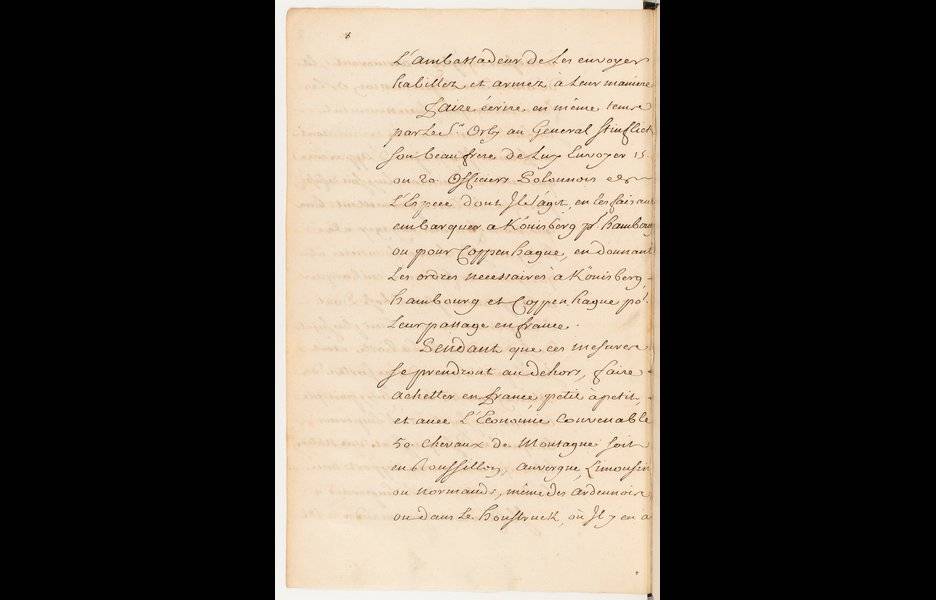 8
L'ambassadeur de les envoyer
habillez et armez à leur maniere
faire écrire en même tems
par Le Sr. Orly au General Steinflict
son beau frere de Luy Envoyer 15.
ou 20 officiers Polonnois de
L'Espece dont Il s'agit, en les faisant
embarquer a Könisberg pr. hambourg
ou pour Coppenhague, en donnant
Les ordres necessaires à Könisberg,
hambourg et Coppenhague pr.
Leur passage en france.
Pendant que ces mesures
se prendront au dehors, faire
achetter en france, petit à petit,
et avec L'Economie Convenable
50 chevaux de Montagne soit
en Roussillon, auvergne, Limousin
ou normands, même des ardennois
ou dans Le honstruck, où Il y en a